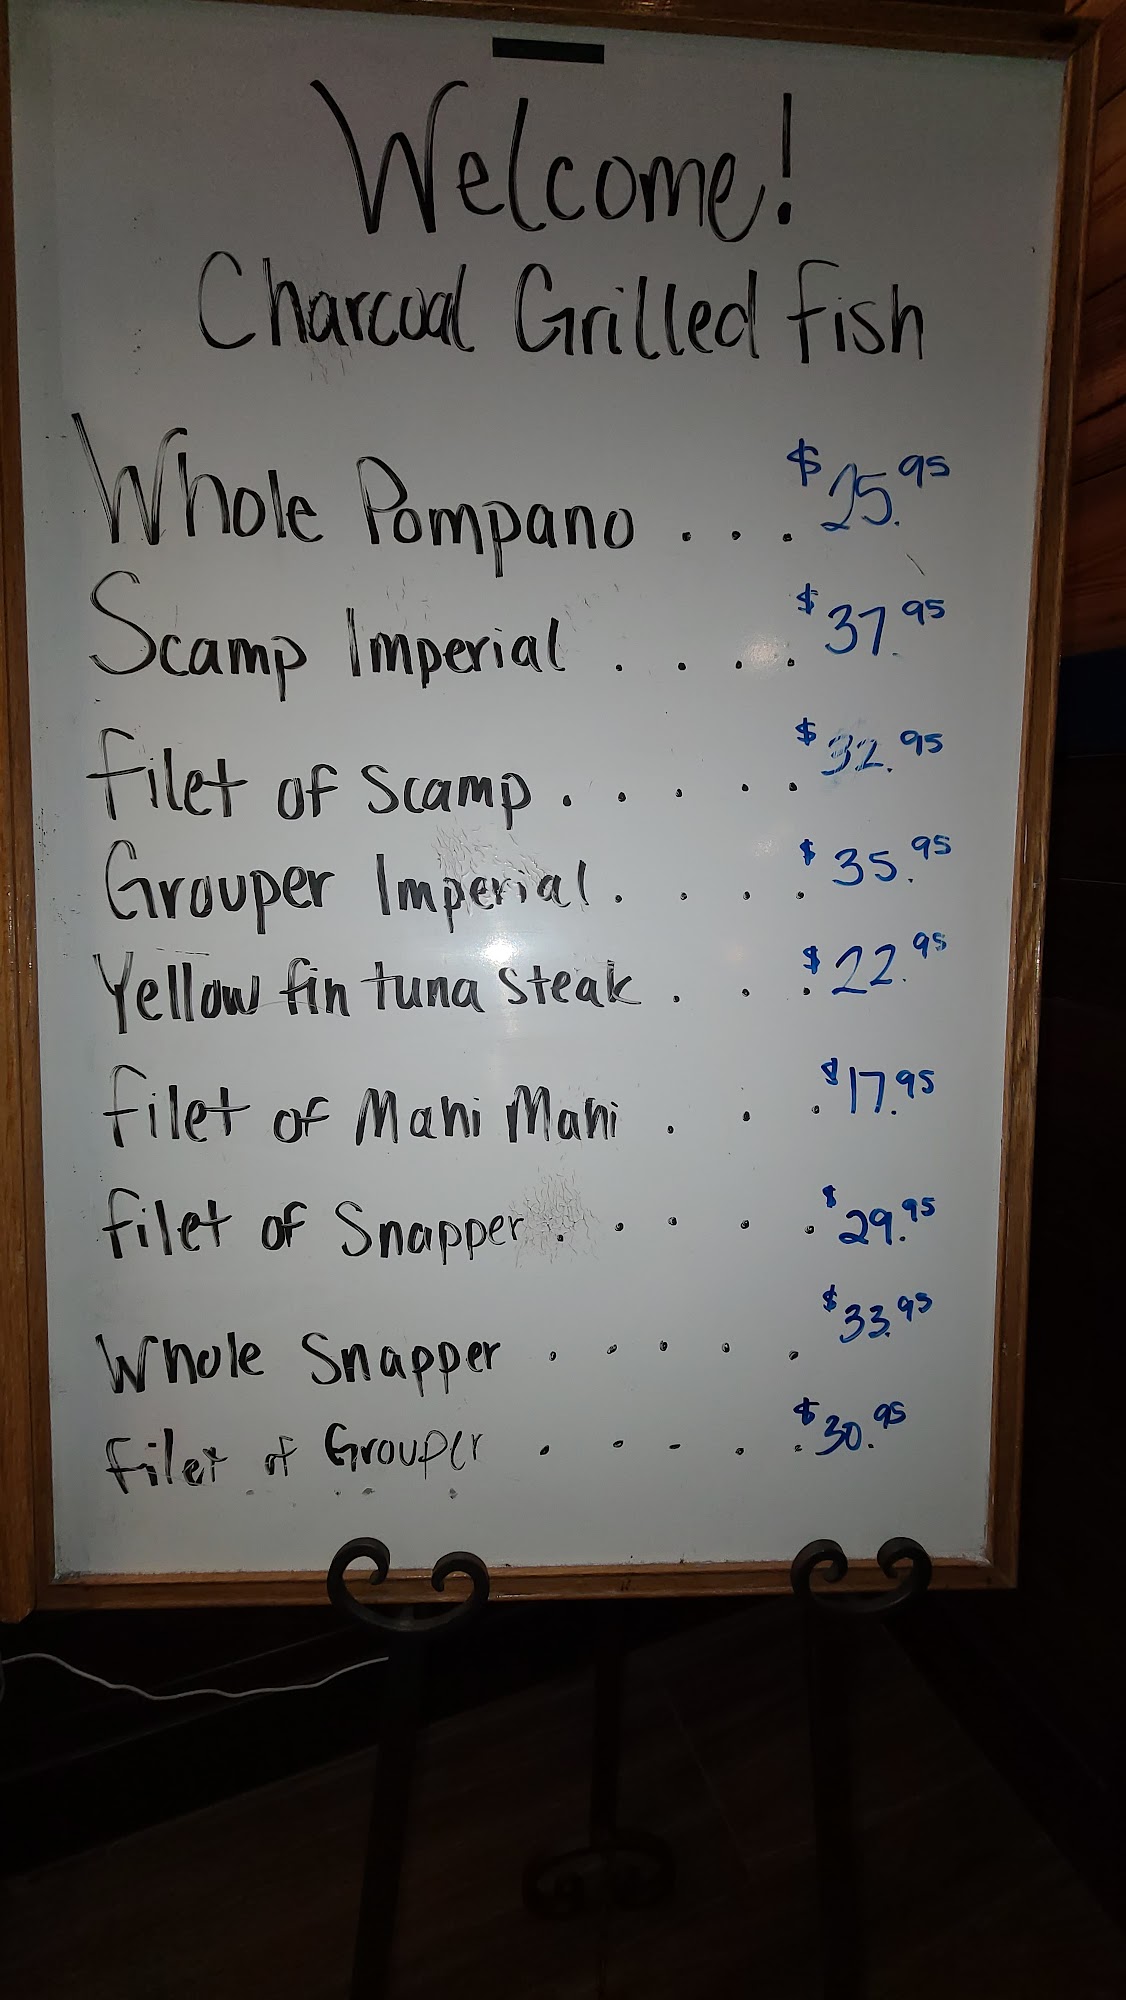 Welcome!
Charcoal Grilled Fish
Whole Pompano . . . $25.95
Scamp Imperial . . . . $37.95
Filet of Scamp . . . . . $32.95
Grouper Imperial . . . . $35.95
Yellow fin tuna steak . . . $22.95
Filet of Mahi Mahi . . . $17.95
Filet of Snapper . . . . . $29.95
Whole Snapper . . . . . $33.95
Filet of Grouper . . . . . $30.95